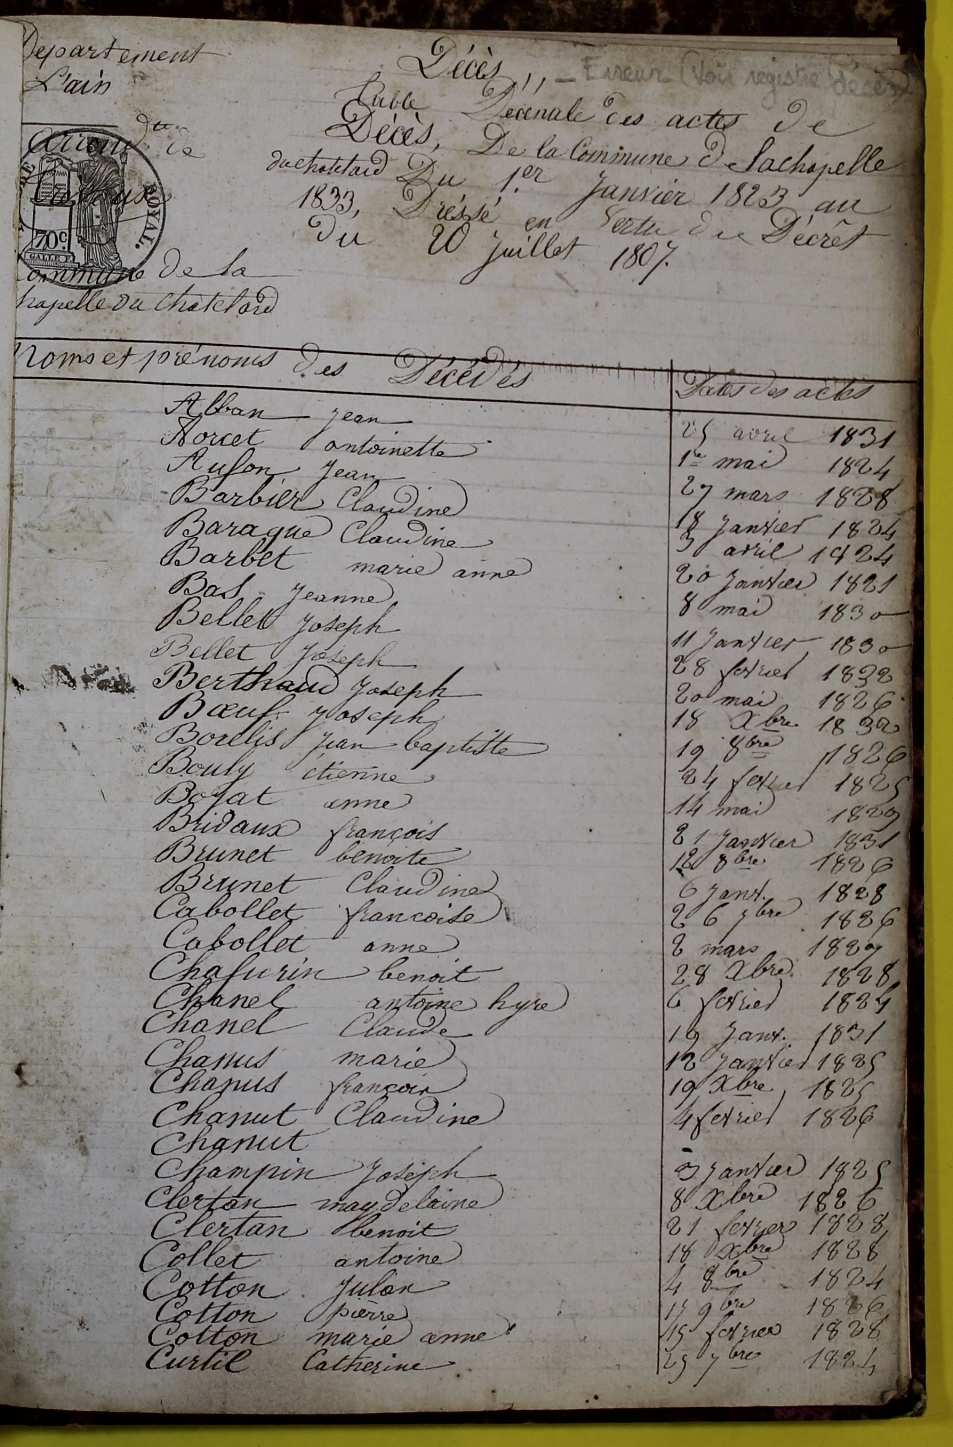 Departement
L'ain
Arrond.t de
Trevoux
ROYAL.
70c.
Commune de la
Chapelle du Chatelard
Décès,, — Erreur (Voir registre décès)
Table Décénale des actes de
Décès, De la Commune de Lachapelle
du chatelard Du 1.er Janvier 1823 au
1833, Dréssé en Vertu du Décrêt
du 20 Juillet 1807.
Noms et prénoms des Décédés Dates des actes
Alban Jean 25 avril 1831
Antoinette 1er mai 1824
Jean 27 mars 1828
Barbier Claudine 18 Janvier 1824
Barague Claudine 3 avril 1824
Barbet marie anne 20 Janvier 1821
Bas Jeanne 8 mai 1830
Bellet Joseph 11 Janvier 1830
Bellet Joseph 28 fevrier 1832
Berthaud Joseph 20 mai 1826
Bœuf Joseph 18 Xbre 1832
Jean baptiste 19 8bre 1826
Bouly étienne 24 fevrier 1825
Bojat anne 14 mai 1829
Bridaux françois 21 Janvier 1831
Brunet benoite 12 8bre 1826
Brunet Claudine 6 Janv. 1828
Cabollet francoise 26 7bre 1826
Cabollet anne 2 mars 1829
Chafurin benoit 28 Xbre 1828
Chanel antoine hyre 6 fevrier 1824
Chanel Claude 19 Janv. 1831
Chanus marie 12 Janvier 1825
Chanus françois 19 Xbre 1825
Chanut Claudine 4 fevrier 1826
Chanut
Champin Joseph 3 Janvier 1825
Clertan magdelaine 8 Xbre 1826
Clertan benoit 21 fevrier 1828
Collet antoine 18 Xbre 1828
Cotton Julon 4 8bre 1824
Cotton pierre 15 9bre 1826
Cotton marie anne 15 fevrier 1828
Curtil Catherine 25 7bre 1824